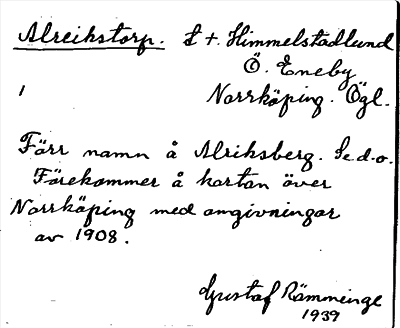 Alreikstorp. L t. Himmelstadlund
Ö. Eneby
1 Norrköping. Ögl.
Förr namn å Alriksberg. Se d.o.
Förekommer å kartan över
Norrköping med omgivningar
av 1908.
Gustaf Rämminge
1939